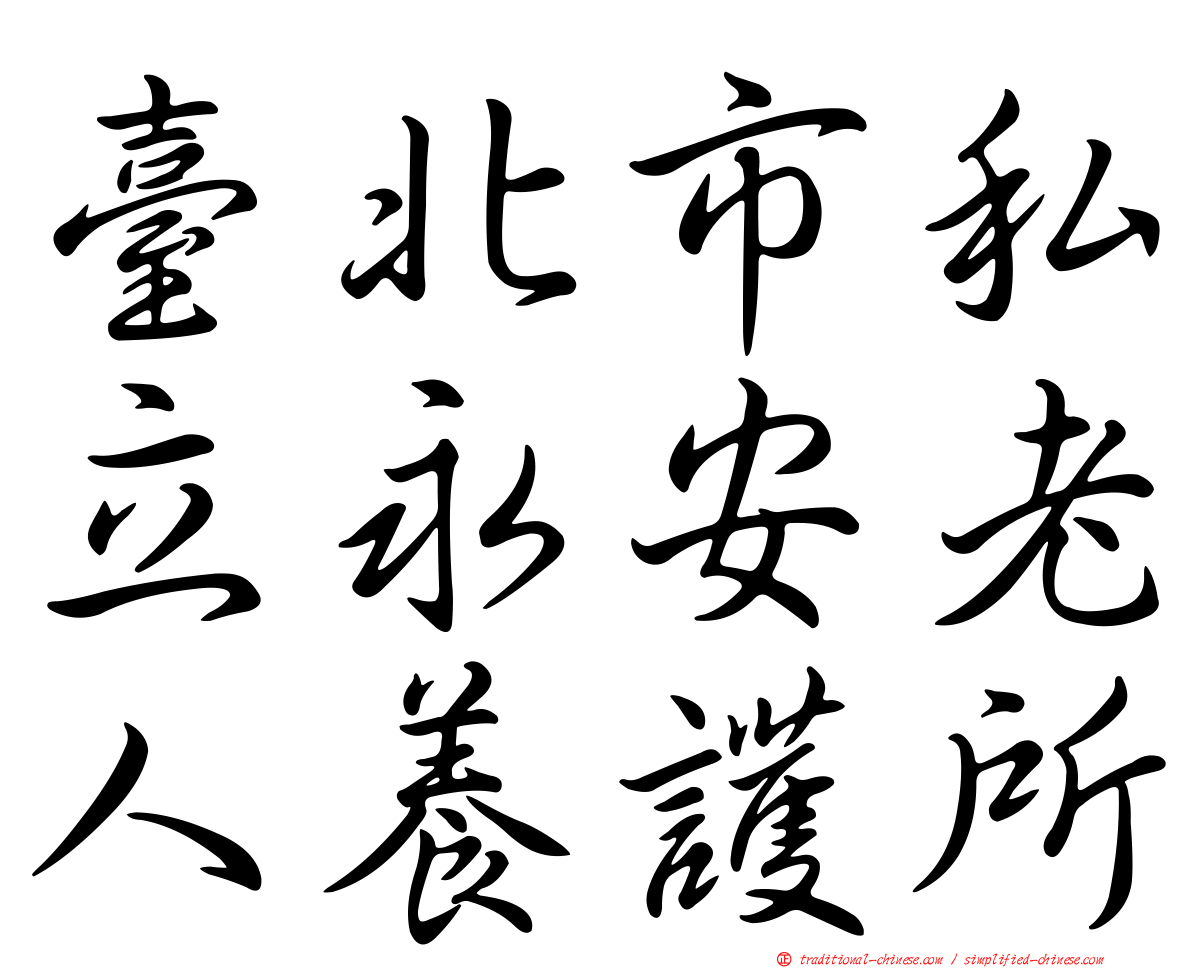 臺北市私
立永安老
人養護所
正 traditional-chinese.com / simplified-chinese.com